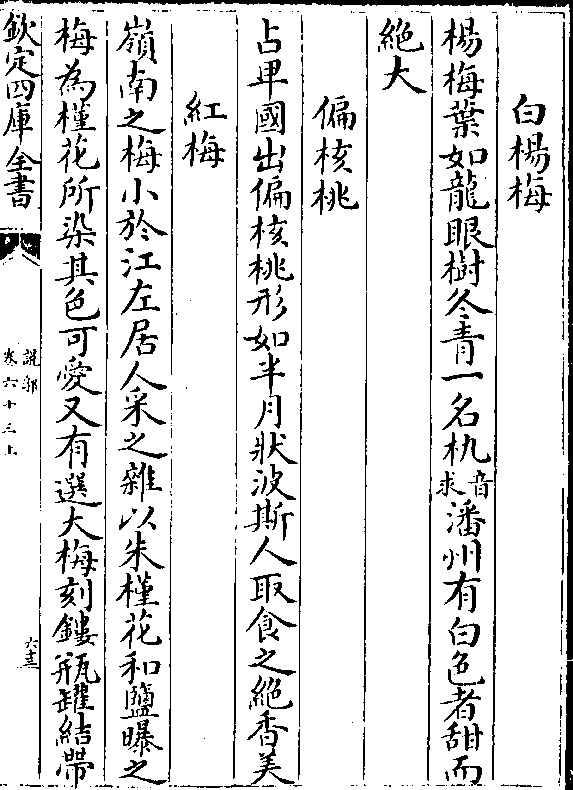 白楊梅
楊梅葉如龍眼樹冬青一名朹音求潘州有白色者甜而
絶大
偏核桃
占卑國出偏核桃形如半月狀波斯人取食之絶香美
紅梅
嶺南之梅小於江左居人采之雜以朱槿花和鹽曝之
梅為槿花所染其色可愛又有選大梅刻鏤瓶罐結帶
欽定四庫全書
說郛
卷六十三上